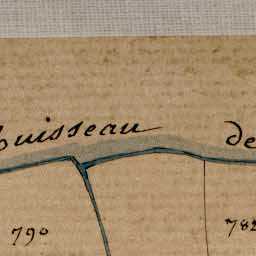 Ruisseau de
790
782